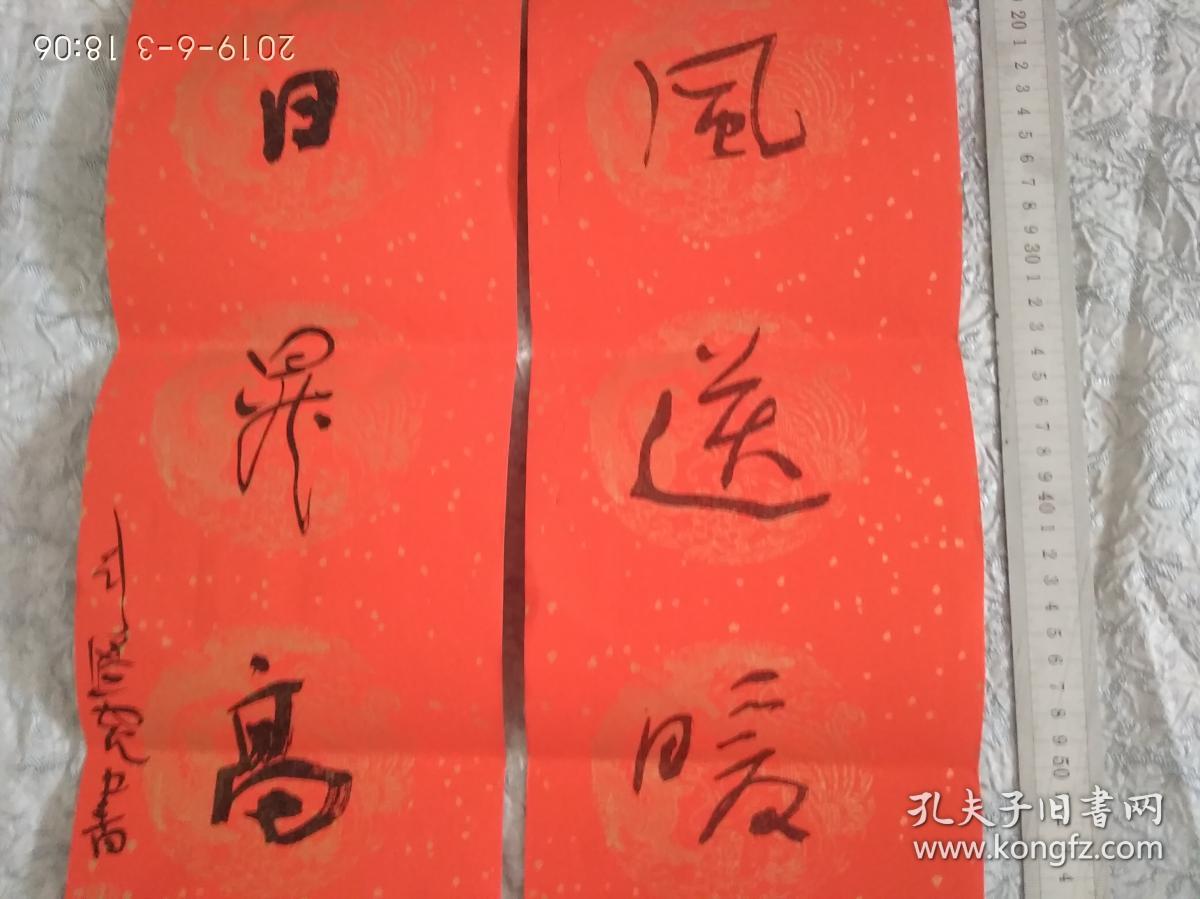 2019-6-3 18:06
風送暖
日昇高
20 1 2 3 4 5 6 7 8 9 30 1 2 3 4 5 6 7 8 9 40 1 2 3 4 5 6 7 8 9 50
孔夫子旧书网
www.kongfz.com